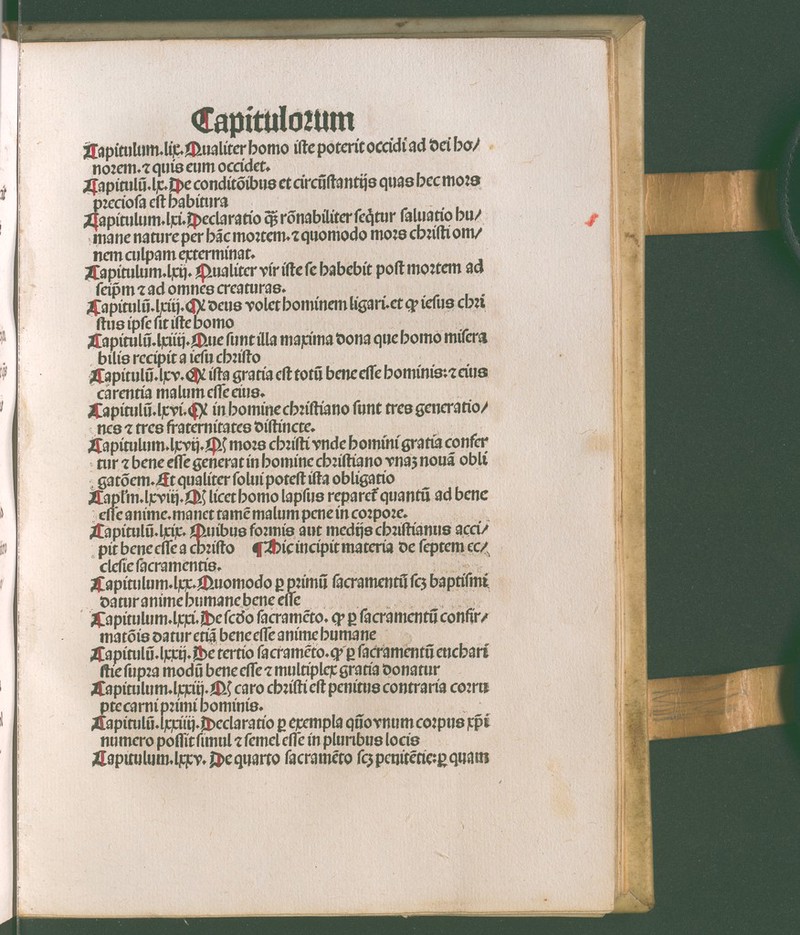 Capitulorum
Capitulum.lix.Qualiter homo iste poterit occidi ad dei ho/
norem.⁊ quis eum occidet.
Capitulū.lx.De conditōibus et circūstantijs quas hec mors
preciosa est habitura
Capitulum.lxi.Declaratio qꝫ rōnabiliter seq̄tur saluatio hu/
mane nature per hāc mortem.⁊ quomodo mors christi om/
nem culpam exterminat.
Capitulum.lxij. Qualiter vir iste se habebit post mortem ad
seip̄m ⁊ ad omnes creaturas.
Capitulū.lxiij.Qꝫ deus volet hominem ligari.et ꝙ iesus chri
stus ipse sit iste homo
Capitulū.lxiiij.Que sunt illa maxima dona que homo misera
bilis recipit a iesu christo
Capitulū.lxv.Qꝫ ista gratia est totū bene esse hominis:⁊ eius
carentia malum esse eius.
Capitulū.lxvi.Qꝫ in homine christiano sunt tres generatio/
nes ⁊ tres fraternitates distincte.
Capitulum.lxvij.Qꝫ mors christi vnde homini gratia confer
tur ⁊ bene esse generat in homine christiano vnaꝫ nouā obli
gatōem.Et qualiter solui potest ista obligatio
Capl̄m.lxviij.Qꝫ licet homo lapsus reparet᷑ quantū ad bene
esse anime.manet tamē malum pene in corpore.
Capitulū.lxix. Quibus formis aut medijs christianus acci/
pit bene esse a christo ¶Hic incipit materia de septem ec/
clesie sacramentis.
Capitulum.lxx.Quomodo ꝑ primū sacramentū scꝫ baptismi
datur anime humane bene esse
Capitulum.lxxi.De scd̄o sacramēto. ꝙ ꝑ sacramentū confir/
matōis datur etiā bene esse anime humane
Capitulū.lxxij.De tertio sacramēto.ꝙ ꝑ sacramentū euchari
stie supra modū bene esse ⁊ multiplex gratia donatur
Capitulum.lxxiij.Qꝫ caro christi est penitus contraria corru
pte carni primi hominis.
Capitulū.lxxiiij.Declaratio ꝑ exempla qūo vnum corpus xp̄i
numero possit simul ⁊ semel esse in pluribus locis
Capitulum.lxxv. De quarto sacramēto scꝫ penitētie:ꝑ quam